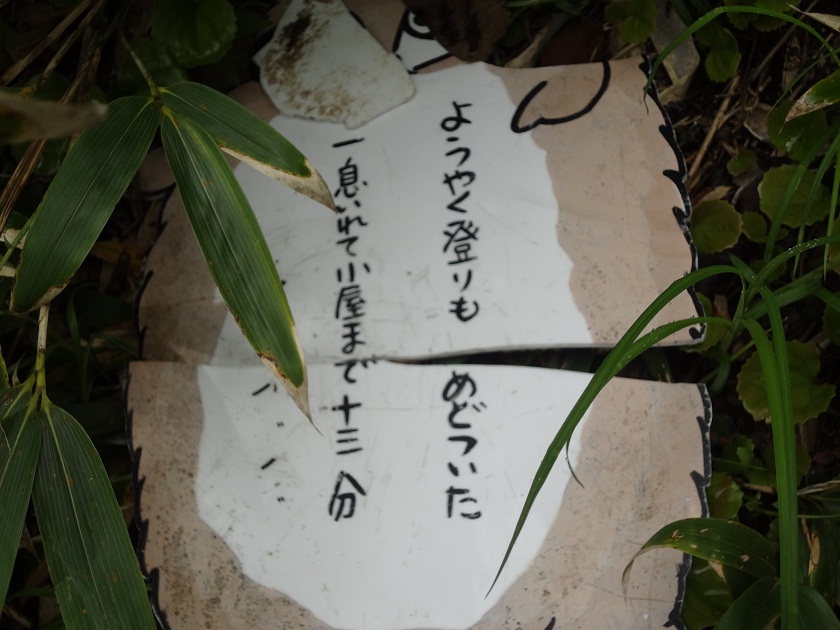 ようやく登りも めどついた
一息いれて小屋まで十三分